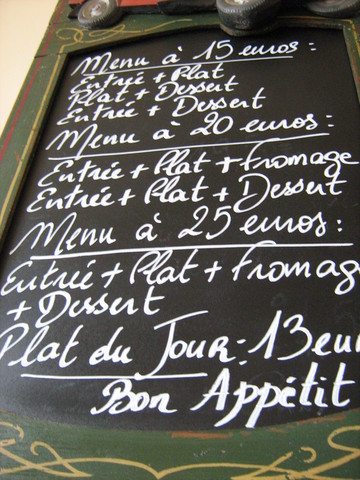 Menu à 15 euros:
Entrée + Plat
Plat + Dessert
Entrée + Dessert
Menu à 20 euros:
Entrée + Plat + Fromage
Entrée + Plat + Dessert
Menu à 25 euros:
Entrée + Plat + Fromag
+ Dessert
Plat du Jour: 13 eur
Bon Appétit